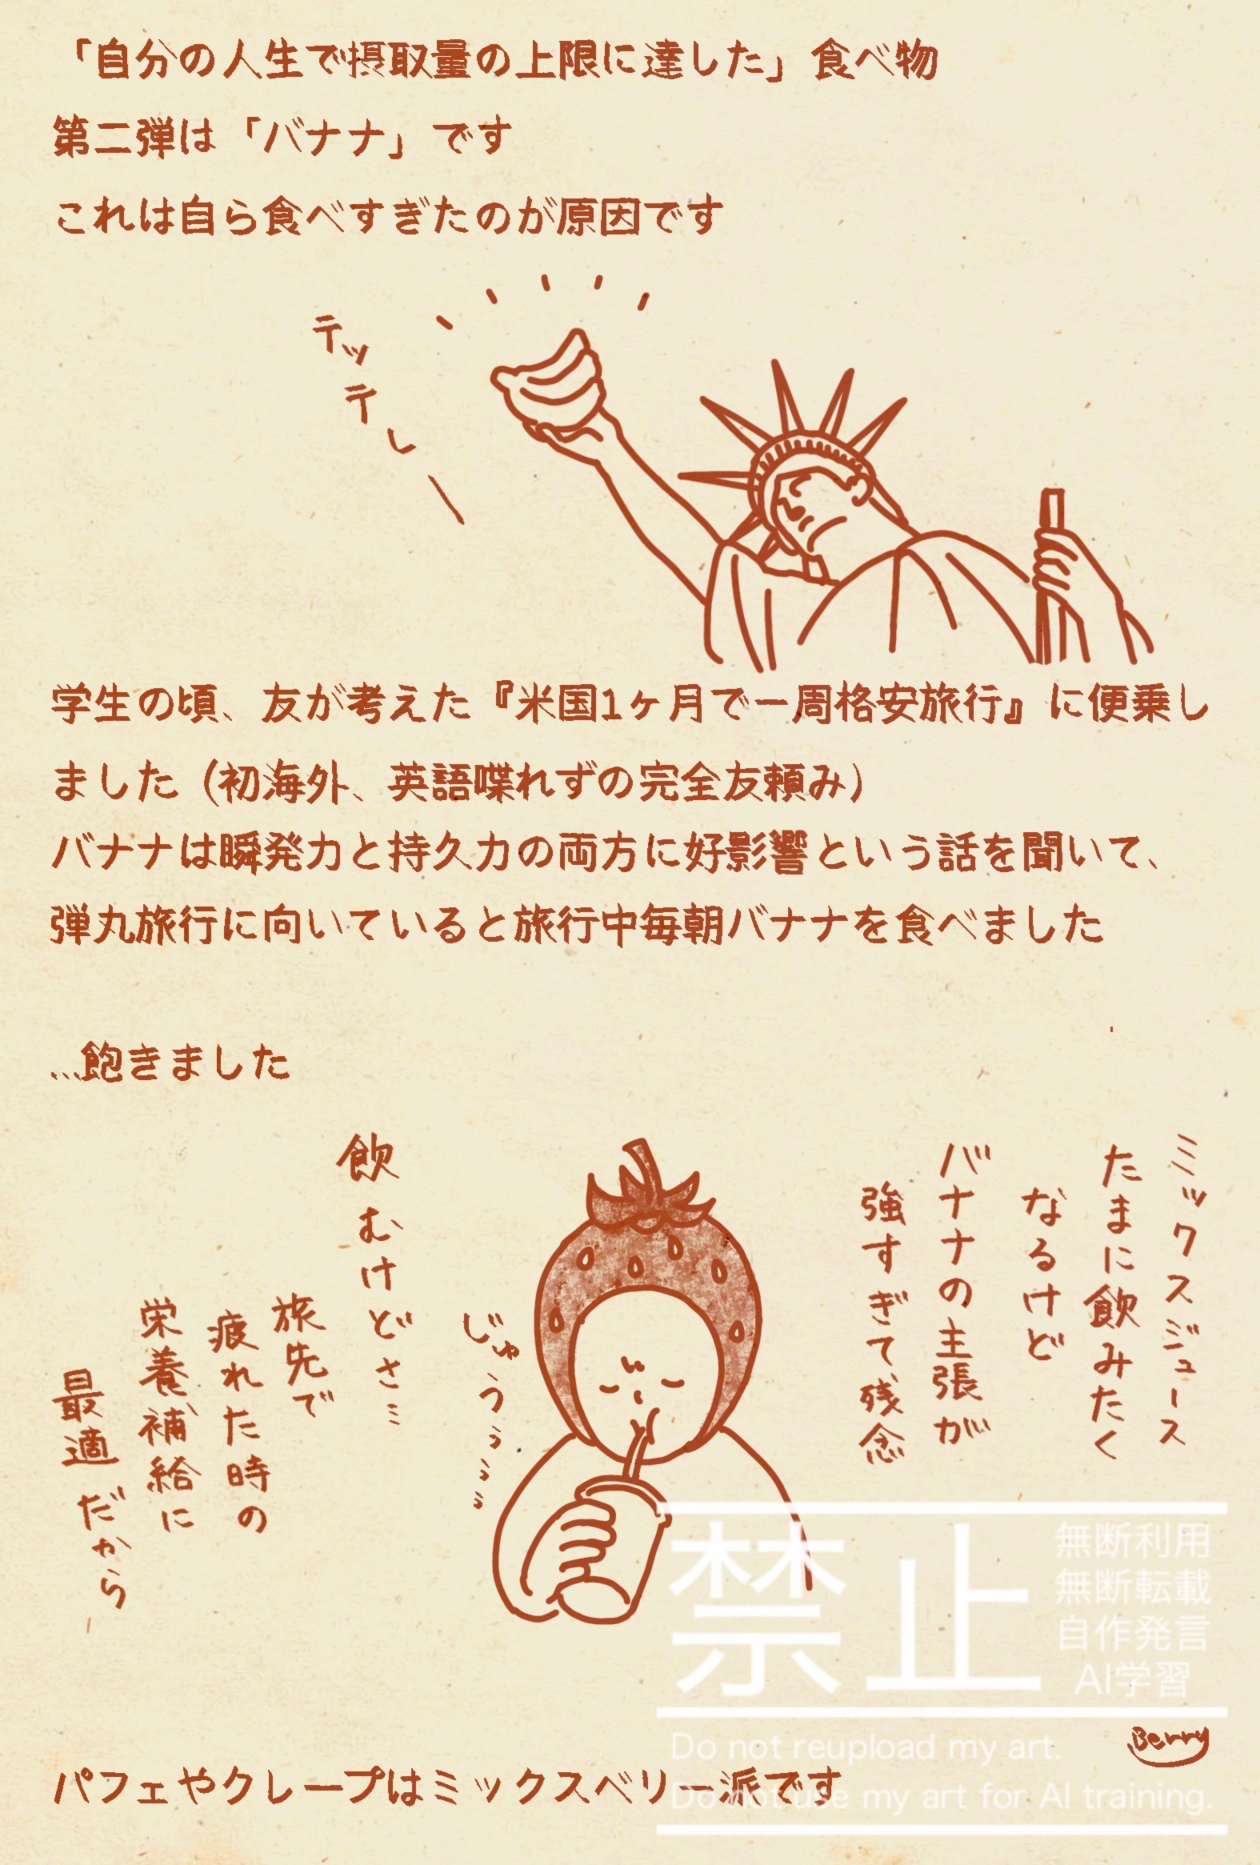 「自分の人生で摂取量の上限に達した」食べ物
第二弾は「バナナ」です
これは自ら食べすぎたのが原因です
テッテレー
学生の頃、友が考えた『米国1ヶ月で一周格安旅行』に便乗し
ました（初海外、英語喋れずの完全友頼み）
バナナは瞬発力と持久力の両方に好影響という話を聞いて、
弾丸旅行に向いていると旅行中毎朝バナナを食べました
…飽きました
ミックスジュース
たまに飲みたく
なるけど
バナナの主張が
強すぎて残念
じゅうぅぅぅ
飲むけどさ…
旅先で
疲れた時の
栄養補給に
最適だから
禁止
無断利用
無断転載
自作発言
AI学習
Do not reupload my art.
Do not use my art for AI training.
Berry
パフェやクレープはミックスベリー派です